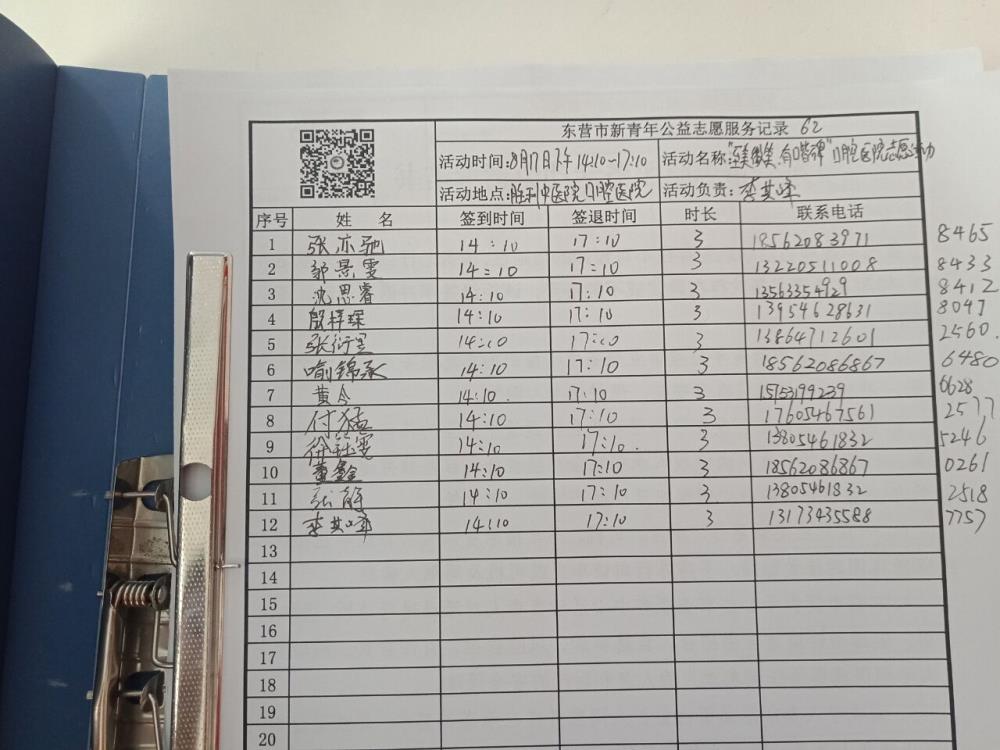 东营市新青年公益志愿服务记录 62
活动时间:8月17日下午14:10~17:10 活动名称: 口腔医院志愿活动
活动地点:胜利中医院口腔医院 活动负责:李其峰
序号 姓 名 签到时间 签退时间 时长 联系电话
1 张亦驰 14:10 17:10 3 18562083971 8465
2 邹景雯 14:10 17:10 3 13220511008 8433
3 沈思睿 14:10 17:10 3 13563354929 8412
4 殷梓琛 14:10 17:10 3 13954628631 8047
5 张衍昱 14:10 17:10 3 13864712601 2560.
6 喻锦承 14:10 17:10 3 18562086867 6480
7 黄令 14:10. 17:10 3 15753199239 6628
8 付猛 14:10 17:10 3 17605467561 2577
9 徐钰雯 14:10 17:10. 3 13805461832 5246
10 14:10 17:10 3 18562086867 0261
11 张静 14:10 17:10 3 13805461832 2518
12 李其峰 14:10 17:10 3 13173435588 7757
13
14
15
16
17
18
19
20